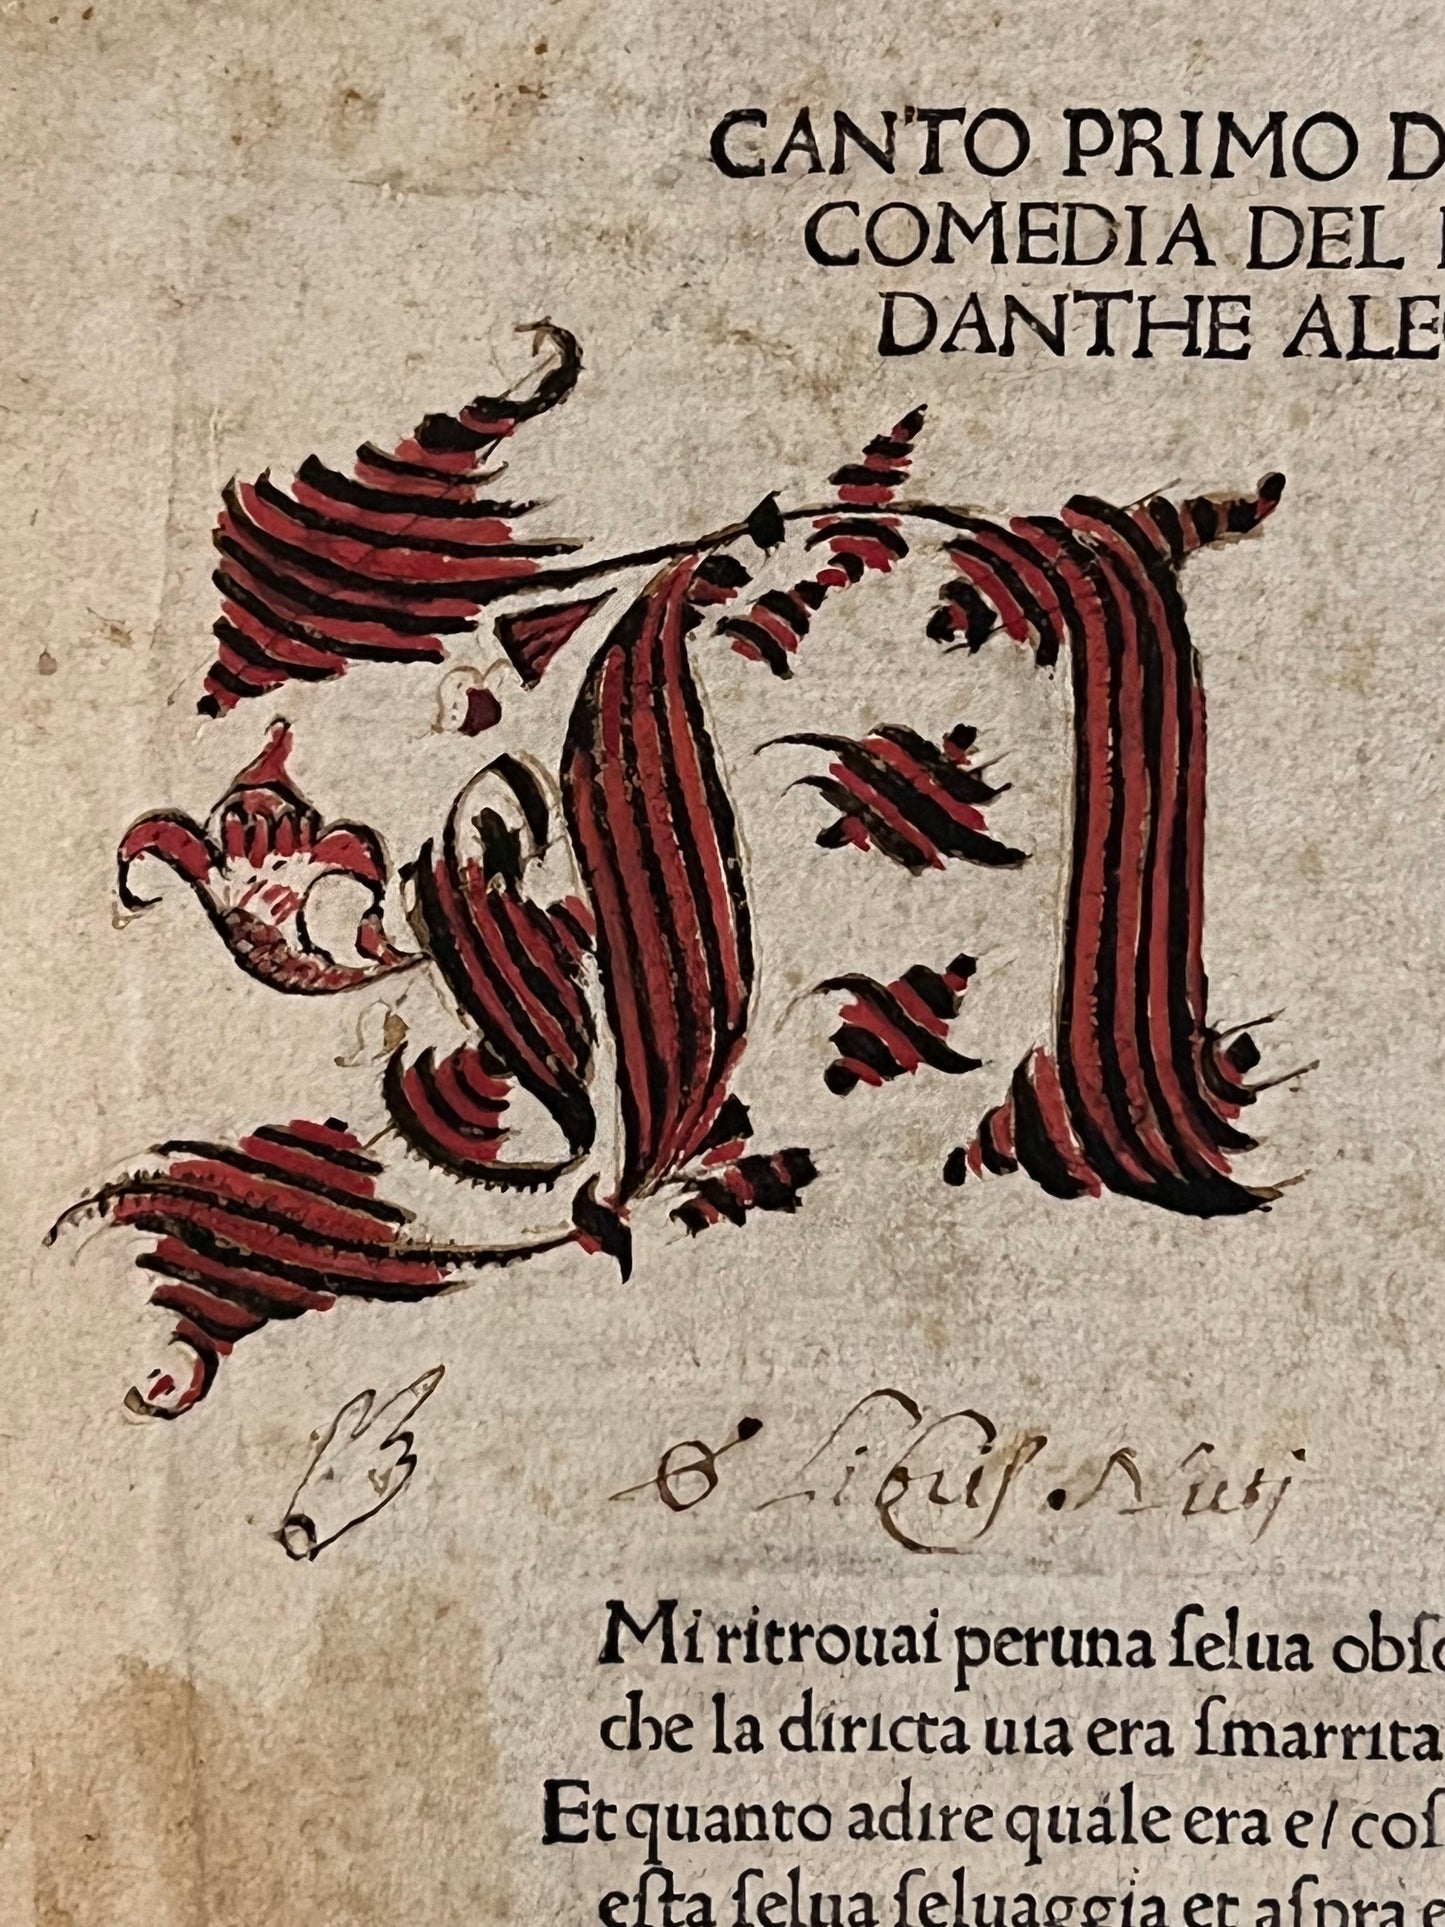 CANTO PRIMO D
COMEDIA DEL
DANTHE ALE
N
Mi ritrouai peruna ſelua obſ
che la diricta uia era ſmarrita
Et quanto adire quále era e/ coſ
eſta ſelua ſeluaggia et aſpra e